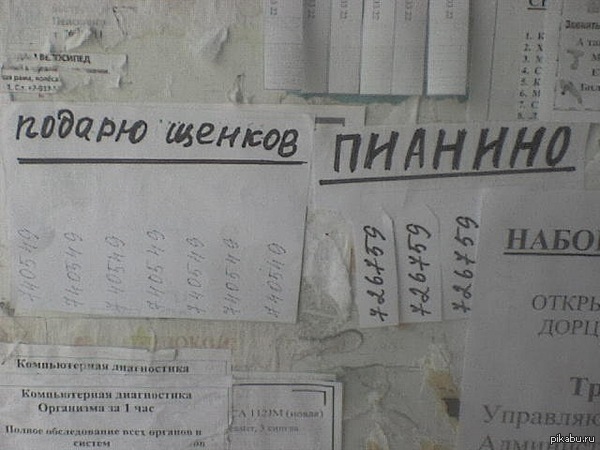 ВЕЛОСИПЕД
подарю щенков
740549
740549
740549
740549
740549
740549
740549
ПИАНИНО
726759
726759
726759
НАБО
ОТКРЫ
ДОРЦ
Тр
Управляю
Админ
Компьютерная диагностика
Компьютерная диагностика
Организма за 1 час
Полное обследование всех органов и
систем
112JM (новая)
pikabu.ru